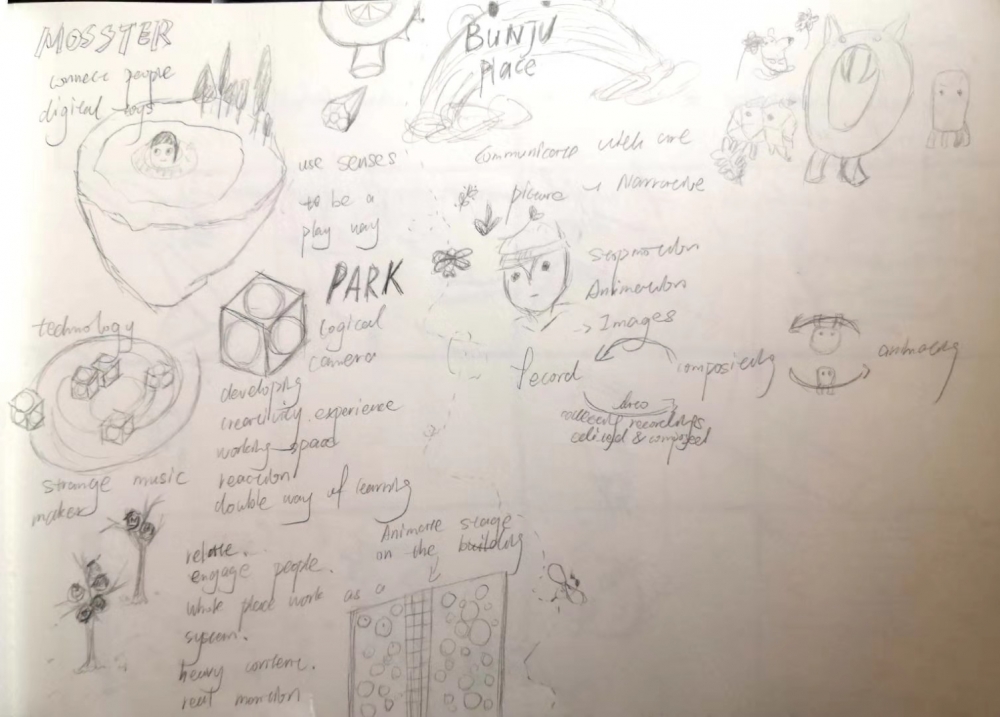 MOSSTER
connect people
digital toys
use senses
to be a
play way
PARK
logical
camera
technology
developing
creativity experience
working space
reaction
double way of learning
strange music
maker
relate.
engage people.
whole place work as a
system.
heavy content.
real motion
BUNJU
place
communicate with care
picture → Narrative
stopmotion
Animation
→ Images
record
compositing
animating
collecting recordings
edited & composed
Animate stage
on the building